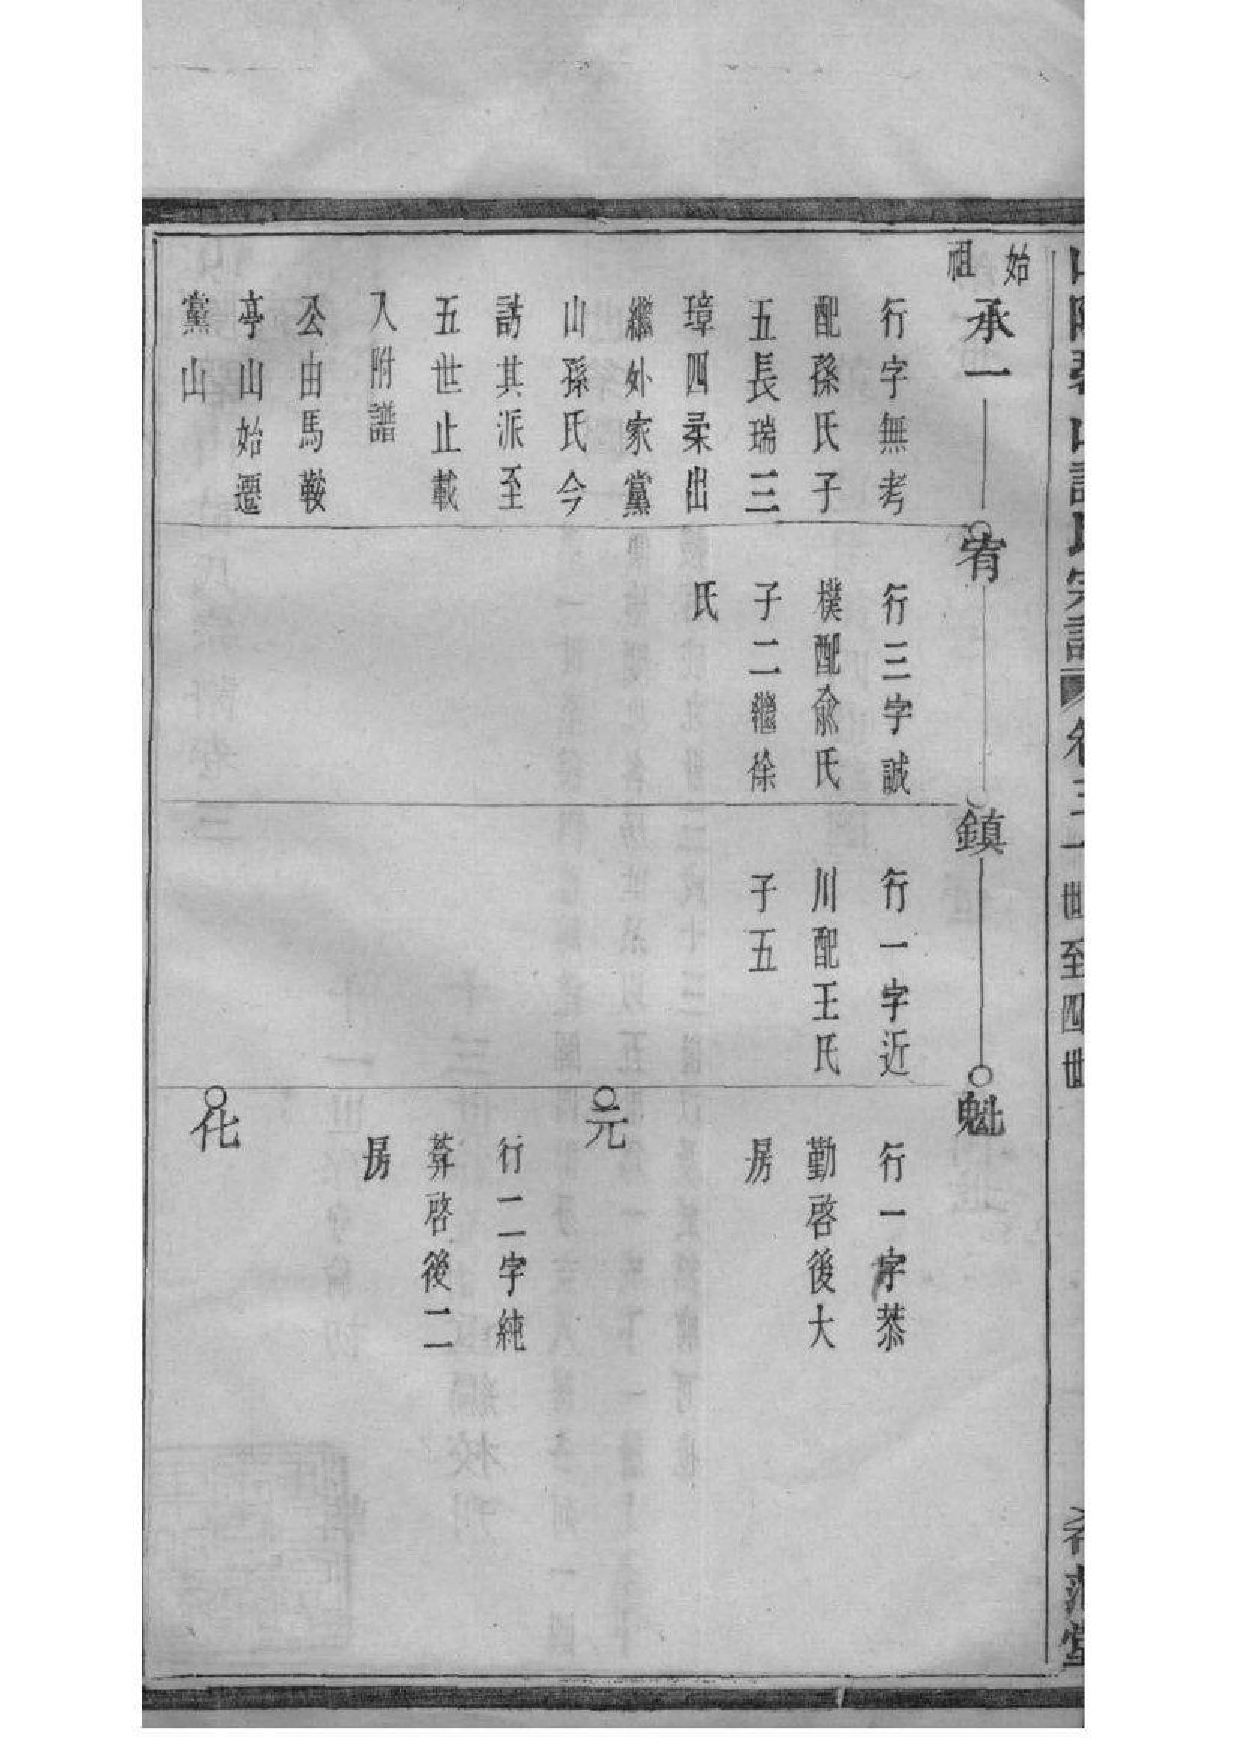 始祖
承一
行字無考
配孫氏子
五長瑞三
璋四柔出
繼外家黨
山孫氏今
訪其派至
五世止載
入附譜
公由馬鞍
亭山始遷
黨山
宥
行三字誠
樸配俞氏
子二繼徐
氏
鎮
行一字近
川配王氏
子五
魁
行一字恭
勤啓後大
房
元
行二字純
葊啓後二
房
化
卷三一世至四世